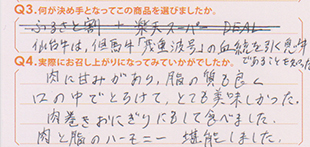 Q3.何が決め手となってこの商品を選びましたか。
ふるさと割 + 楽天スーパー DEAL
仙台牛は、但馬牛「茂重波号」の血統を引く
であることを
Q4.実際にお召し上がりになってみていかがでしたか。
肉に甘みがあり、脂の質も良く
口の中でとろけて、とても美味しかった。
肉巻きおにぎりにもして食べました。
肉と脂のハーモニー 堪能しました。